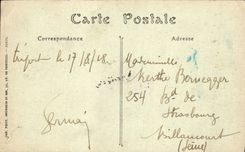 Carte Postale
Correspondance
Adresse
Tréport le 17/8/28
Germain
Mademoiselle
Berthe Bernegger
254 Bd de
Strasbourg
Billancourt
(Seine)